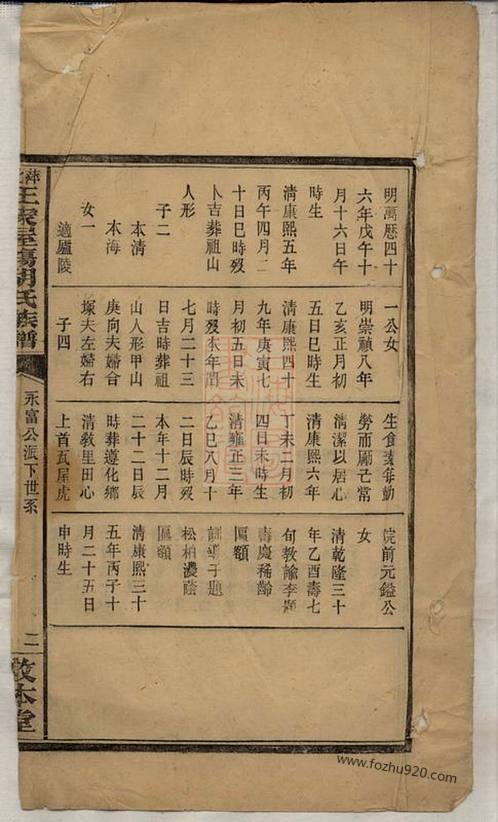 明萬曆四十
六年戊午十
月十六日午
時生
清康熙五年
丙午四月二
十日巳時歿
卜吉葬祖山
人形
子二
本清
本海
女一
適廬陵
一公女
明崇禎八年
乙亥正月初
五日巳時生
清康熙四十
九年庚寅七
月初五日未
時歿本年閏
七月二十三
日吉時葬祖
山人形甲山
庚向夫婦合
塚夫左婦右
子四
生食素每動
勞而願芒常
清潔以居心
清康熙六年
丁未二月初
四日未時生
清雍正三年
乙巳八月十
二日辰時歿
本年十二月
二十二日辰
時葬遵化鄉
清教里田心
上首瓦屋虎
院前元鎰公
女
清乾隆三十
年乙酉壽七
旬教諭李題
壽慶稀齡
匾額
訓導于題
松柏濃蔭
匾額
清康熙三十
五年丙子十
月二十五日
申時生
王家屋場胡氏族譜
永富公派下世系
二
敦本堂
www.fozhu920.com